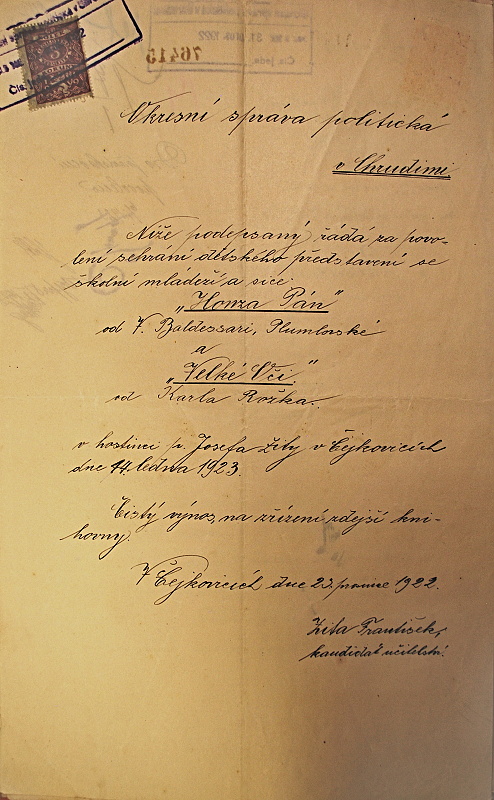 Okresní správa politická
v Chrudimi
Níže podepsaný žádá za povo-
lení sehrání dětského představení se
školní mládeží a sice:
„Honza Pán"
od V. Baldessari, Plumlovské
a
„Velké Oči."
od Karla Rožka.
v hostinci p. Josefa Žity v Čejkovicích
dne 14. ledna 1923.
Čistý výnos na zřízení zdejší kni-
hovny.
V Čejkovicích dne 23. prosince 1922.
Zita František,
kandidát učitelství.
76415